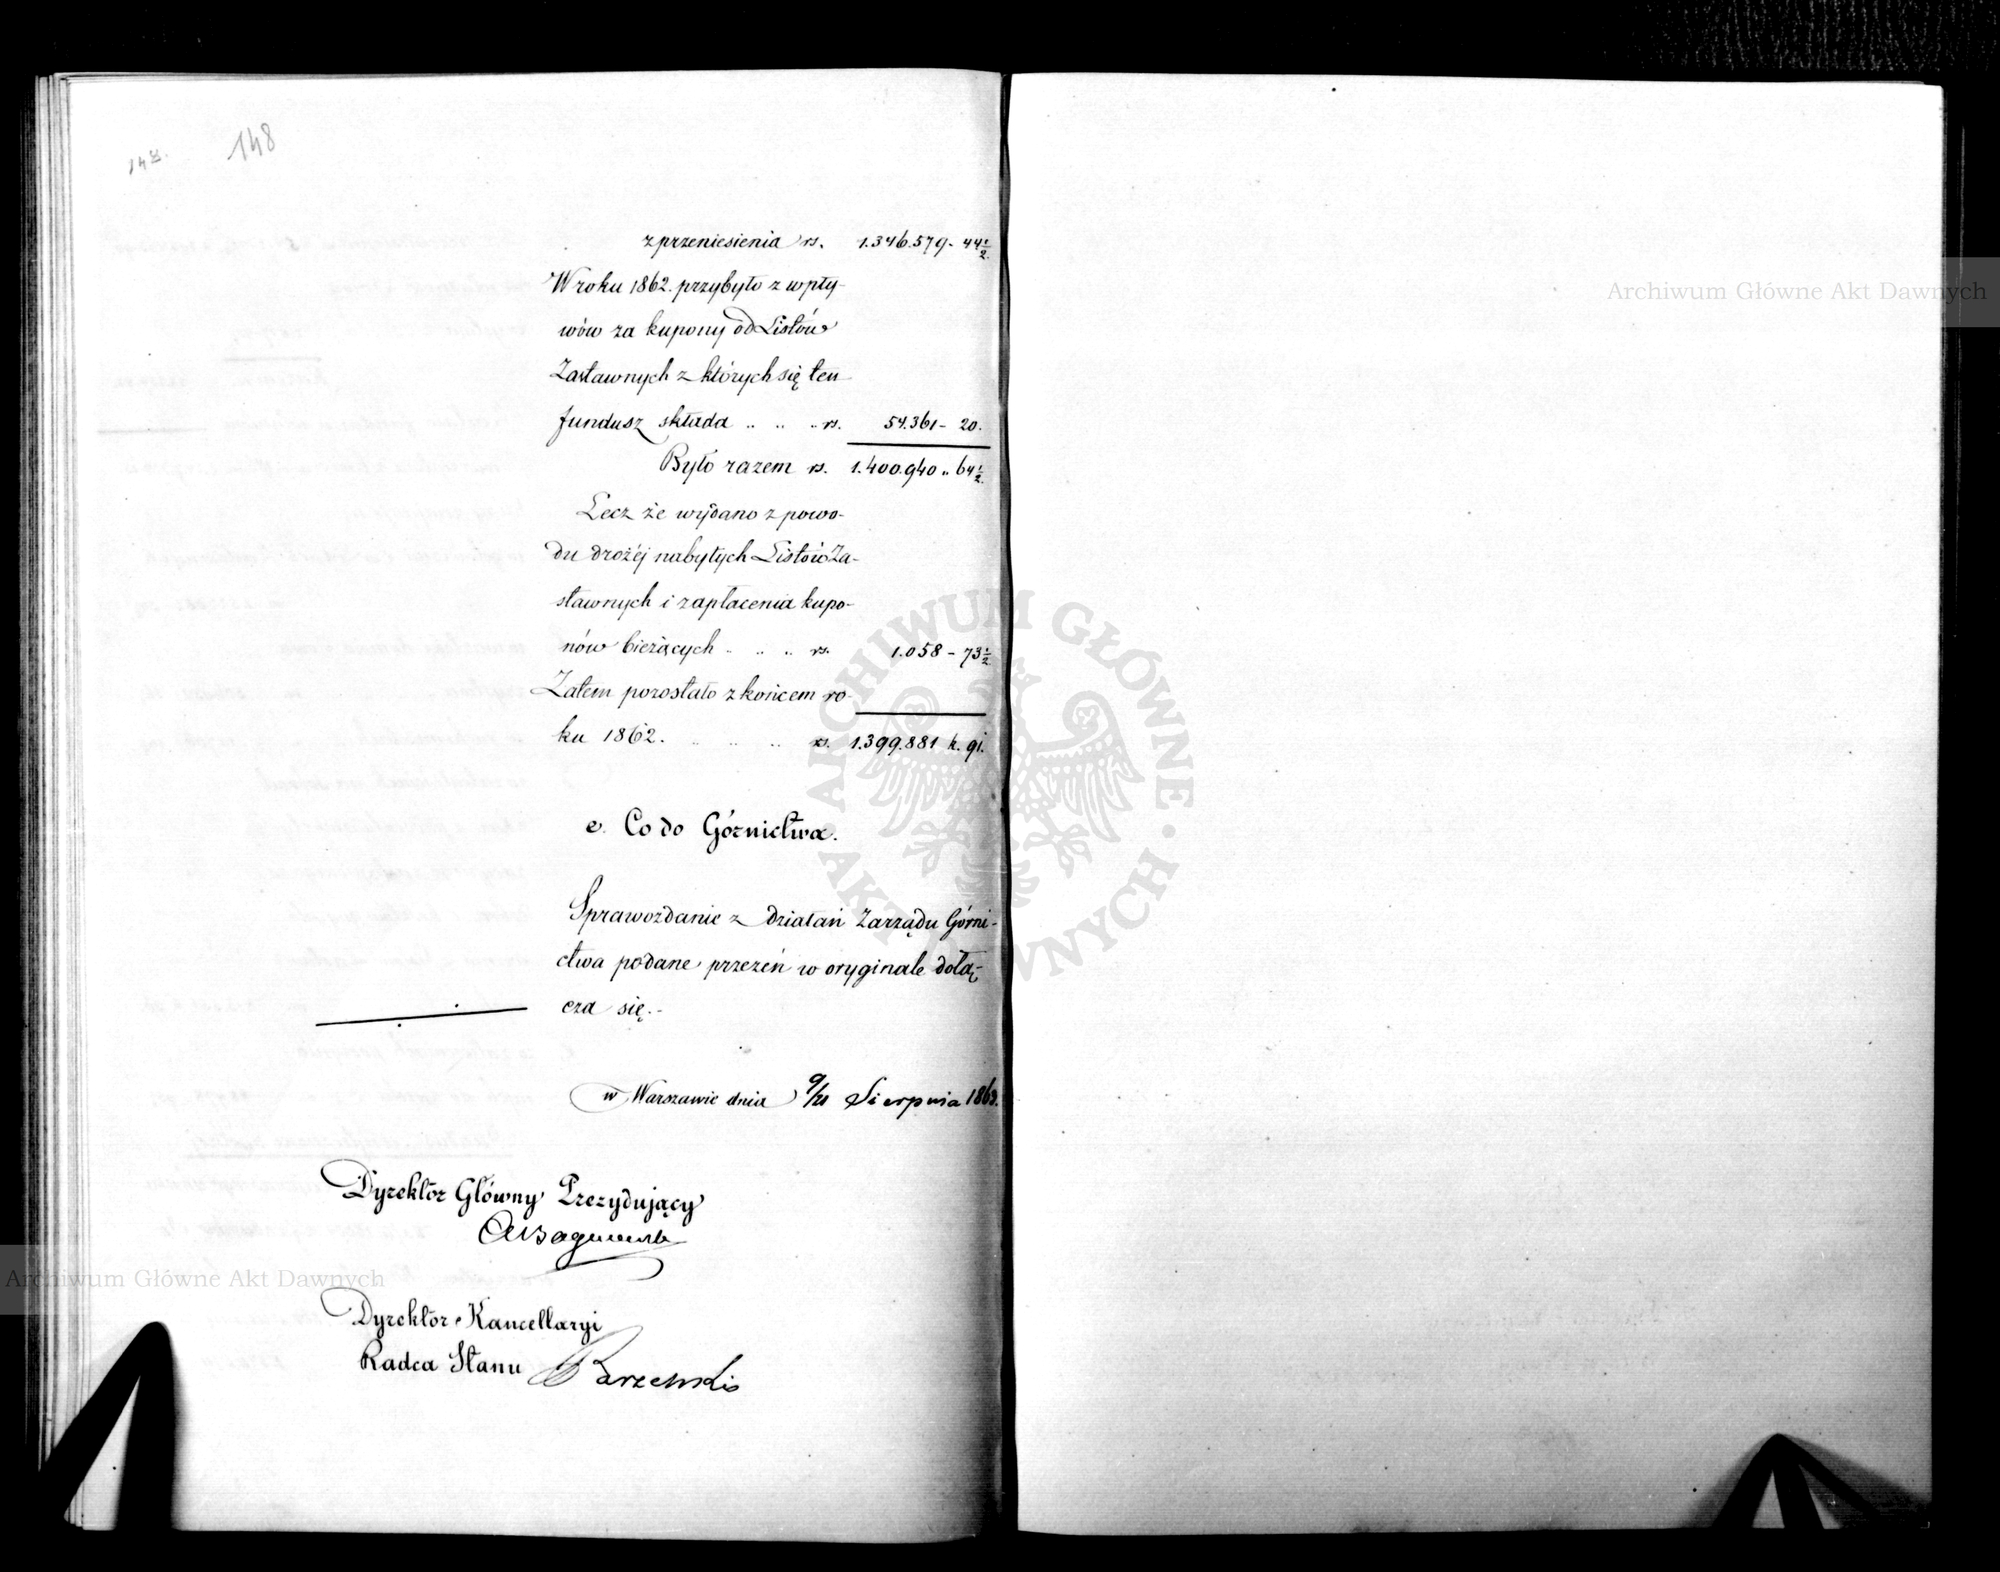 148.
148
z przeniesienia rs. 1.346.579 - 44½
W roku 1862. przybyło z wpły-
wów za kupony od Listów
Zastawnych z których się ten
fundusz składa .. .. .. rs. 54.361 - 20.
Było razem rs. 1.400.940 .. 64½
Lecz że wydano z powo-
du drożéj nabytych Listów Za-
stawnych i zapłacenia kupo-
nów bieżących .. .. .. rs. 1.058 - 73½
Zatem pozostało z końcem ro-
ku 1862. .. .. .. rs. 1.399.881 k. 91.
e. Co do Górnictwa.
Sprawozdanie z działań Zarządu Górni-
ctwa podane przezeń w oryginale dołą-
cza się.-
w Warszawie dnia 9/21 Sierpnia 1863.
Dyrektor Główny Prezydujący
Dyrektor Kancellaryi
Radca Stanu
Archiwum Główne Akt Dawnych
Archiwum Główne Akt Dawnych
ARCHIWUM GŁÓWNE · AKT DAWNYCH ·